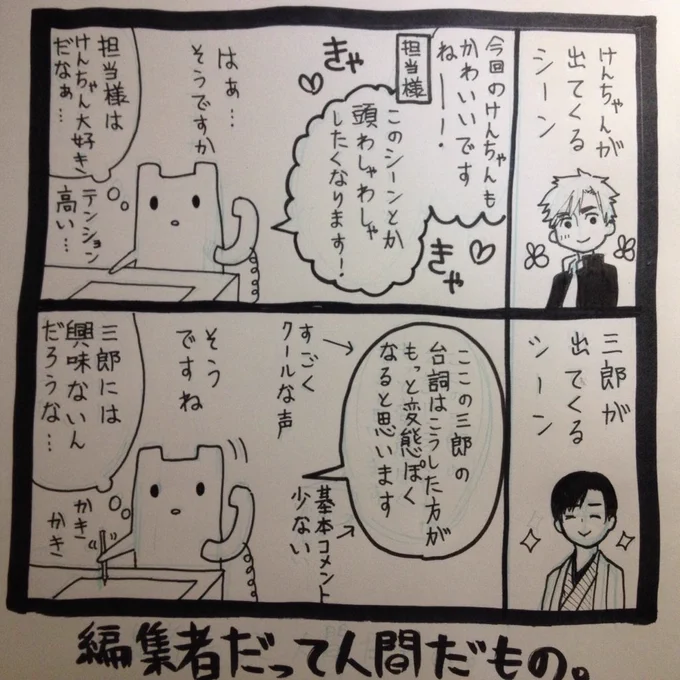 けんちゃんが
出てくる
シーン
今回のけんちゃんも
かわいいです
ねーー!
担当様
きゃ
このシーンとか
頭わしゃわしゃ
したくなります!
きゃ
はぁ…
そうですか
担当様は
けんちゃん大好き
だなぁ…
テンション
高い…
三郎が
出てくる
シーン
ここの三郎の
台詞はこうした方が
もっと変態ぽく
なると思います
すごく
クールな声
基本コメント
少ない
そう
ですね
三郎には
興味ないん
だろうな…
かき
かき
編集者だって人間だもの。